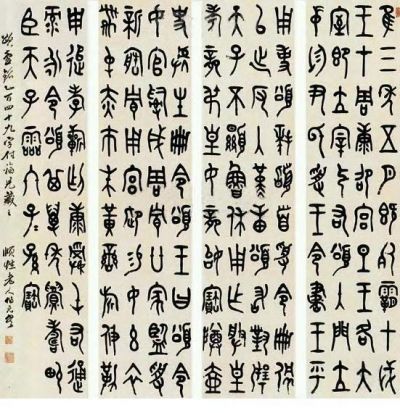 隹三年五月既死霸甲戌
王才周康邵宮旦王各大
室即立宰引右頌入門立
中廷尹氏受王令書王乎
用事頌拜稽首受令冊佩
以出反入堇章頌敢對揚
天子不顯魯休用乍朕皇
考龔叔皇母龔姒寶尊壺
史虢生冊令頌王曰頌令
女官司成周貯廿家監司
新造貯用宮御易女玄衣
黹屯赤巿朱黃鑾旂攸勒
用追孝祈匄康屯右通
祿永令頌其萬年眉壽畯
臣天子霝冬子子孫寶
頌壺銘乙百四十九字付福兒藏之 頤性老人伯元